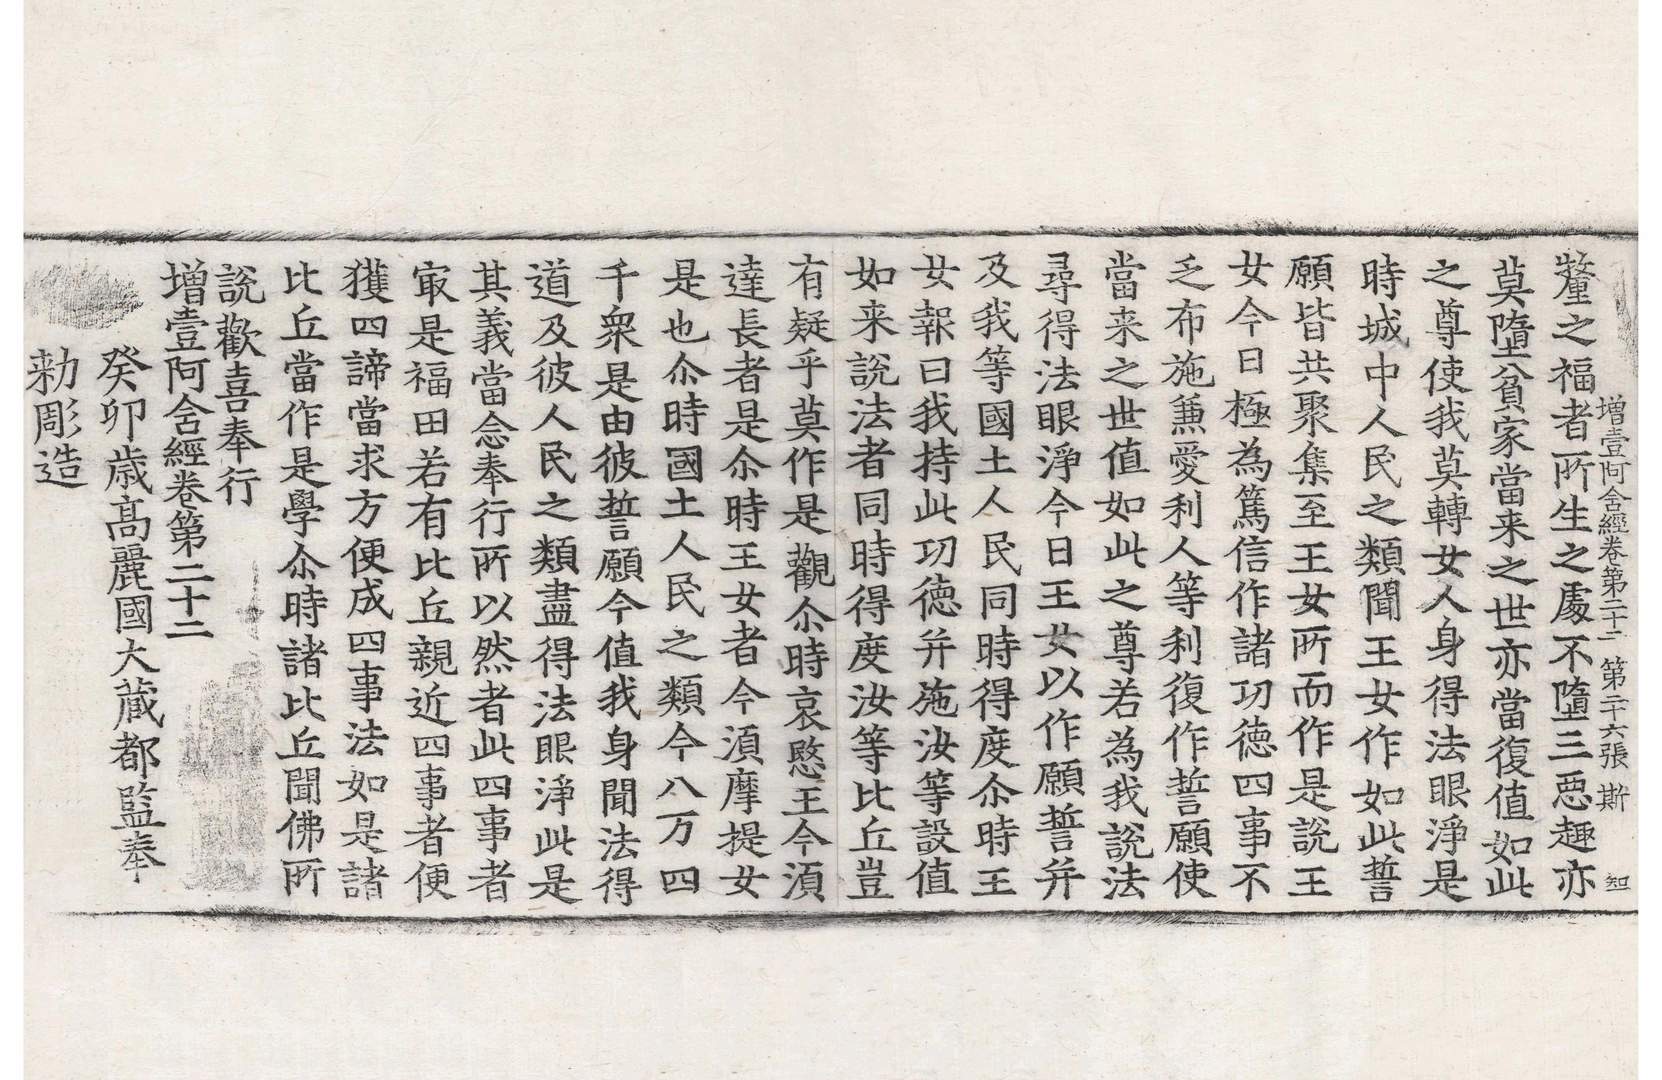 增壹阿含經卷第二十二 第二十六張 斯 知
氂之福者所生之處不墮三惡趣亦
莫墮貧家當来之世亦當復值如此
之尊使我莫轉女人身得法眼淨是
時城中人民之類聞王女作如此誓
願皆共聚集至王女所而作是說王
女今日極為篤信作諸功德四事不
乏布施兼愛利人等利復作誓願使
當来之世值如此之尊若為我說法
尋得法眼淨今日王女以作願誓并
及我等國土人民同時得度尒時王
女報曰我持此功德并施汝等設值
如来說法者同時得度汝等比丘豈
有疑乎莫作是觀尒時哀愍王今湏
達長者是尒時王女者今湏摩提女
是也尒時國土人民之類今八万四
千衆是由彼誓願今值我身聞法得
道及彼人民之類盡得法眼淨此是
其義當念奉行所以然者此四事者
㝡是福田若有比丘親近四事者便
獲四諦當求方便成四事法如是諸
比丘當作是學尒時諸比丘聞佛所
說歡喜奉行
增壹阿含經卷第二十二
癸卯歳髙麗國大藏都監奉
勑彫造